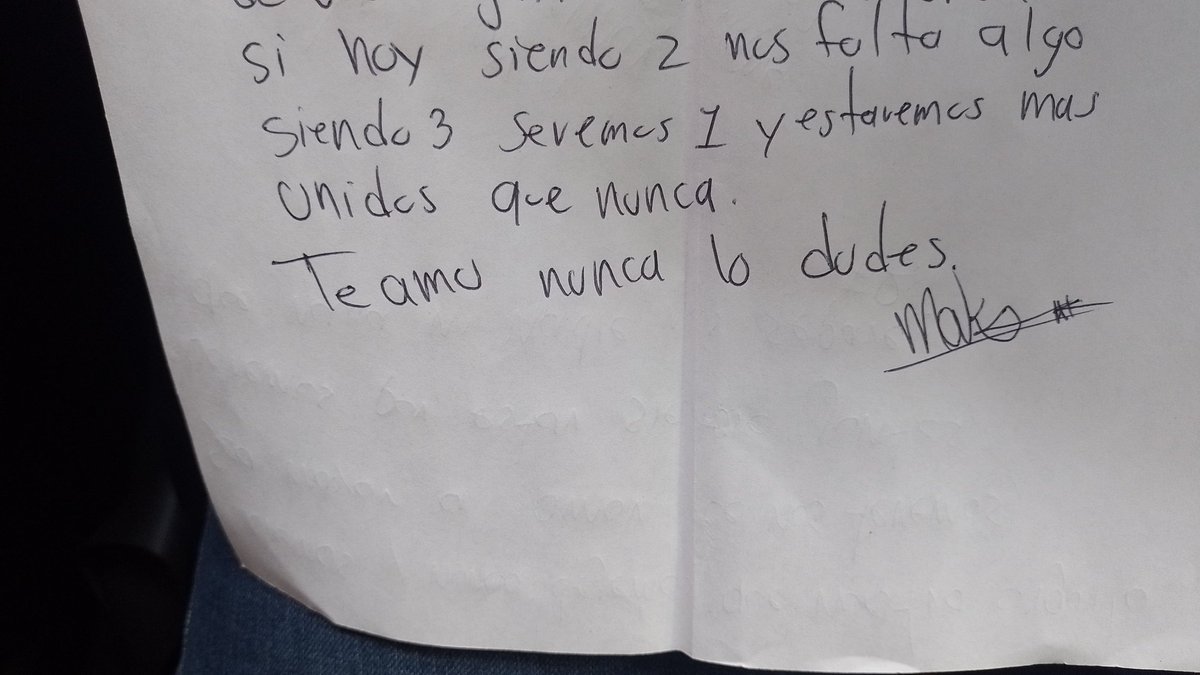 si hoy siendo 2 nos falta algo
siendo 3 seremos 1 y estaremos mas
unidos que nunca.
Te amo nunca lo dudes.
Mako